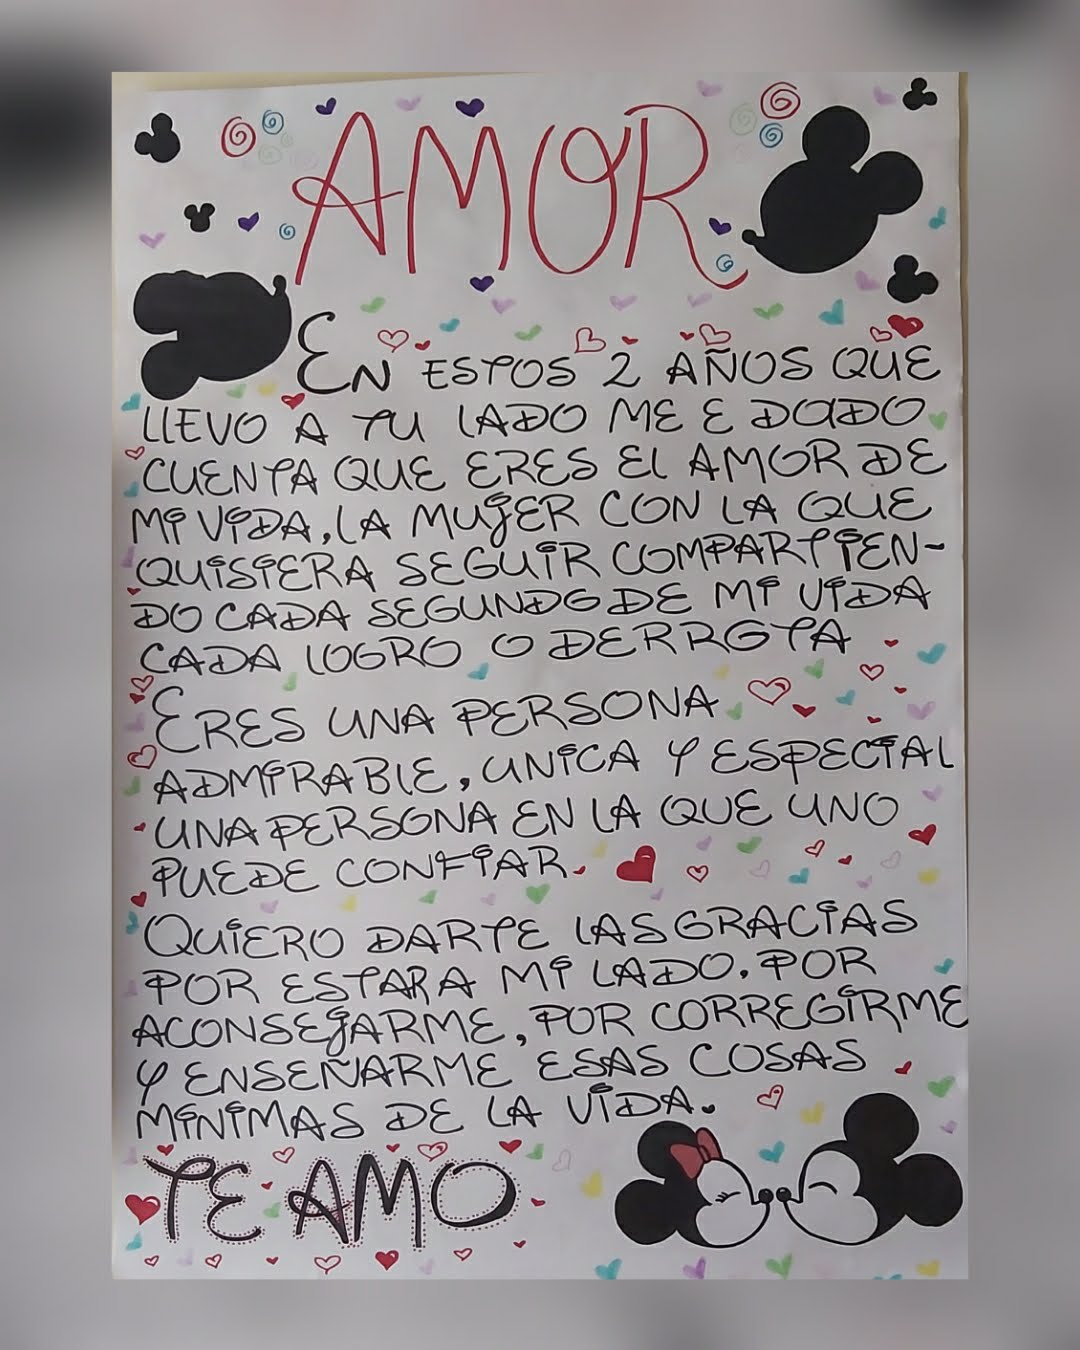 AMOR
EN ESTOS 2 AÑOS QUE
LLEVO A TU LADO ME E DADO
CUENTA QUE ERES EL AMOR DE
MI VIDA, LA MUJER CON LA QUE
QUISIERA SEGUIR COMPARTIEN-
DO CADA SEGUNDO DE MI VIDA
CADA LOGRO O DERROTA
ERES UNA PERSONA
ADMIRABLE, UNICA Y ESPECIAL
UNA PERSONA EN LA QUE UNO
PUEDE CONFIAR.
QUIERO DARTE LAS GRACIAS
POR ESTAR A MI LADO. POR
ACONSEJARME, POR CORREGIRME
Y ENSEÑARME ESAS COSAS
MINIMAS DE LA VIDA.
TE AMO